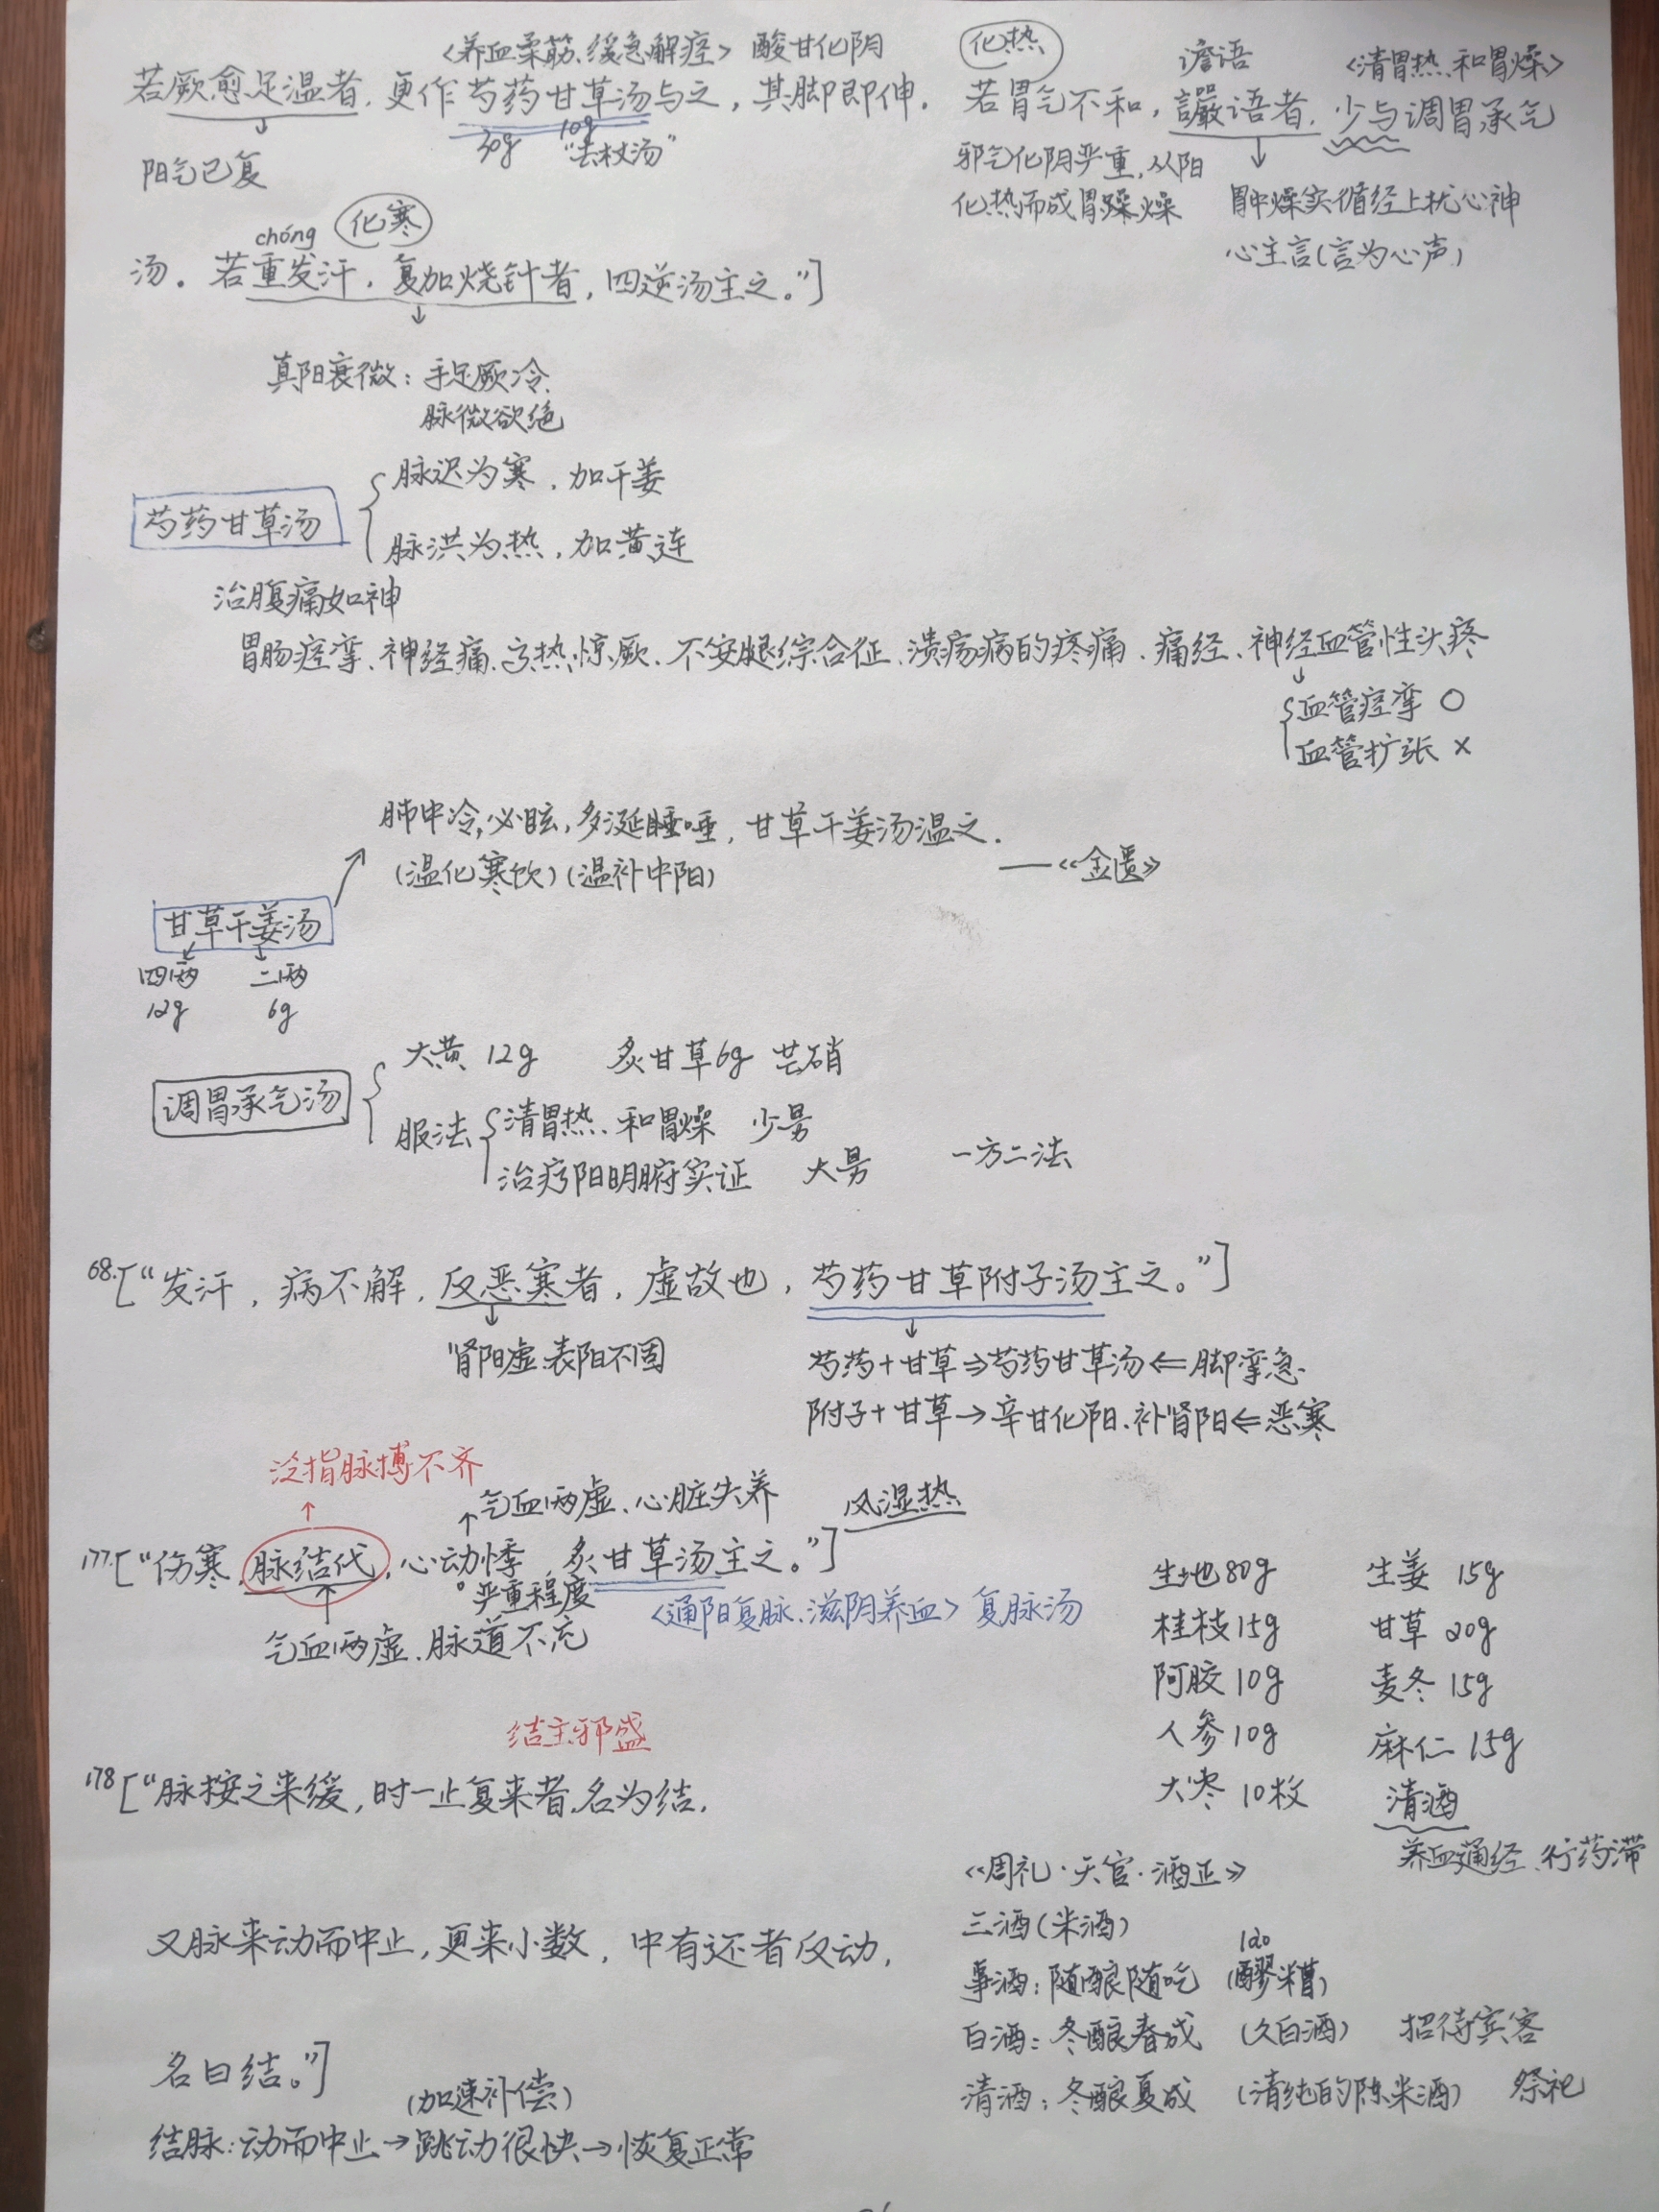 <养血柔筋、缓急解痉> 酸甘化阴 化热 谵语 <清胃热、和胃燥>
若厥愈足温者，更作芍药甘草汤与之，其脚即伸。若胃气不和，讝语者，少与调胃承气
30g 10g "去杖汤"
阳气已复
邪气化阴严重，从阳
化热而成胃燥
胃中燥实循经上扰心神
心主言(言为心声)
chóng 化寒
汤。若重发汗，复加烧针者，四逆汤主之。"]
真阳衰微：手足厥冷
脉微欲绝
芍药甘草汤
脉迟为寒，加干姜
脉洪为热，加黄连
治腹痛如神
胃肠痉挛、神经痛、高热惊厥、不安腿综合征、溃疡病的疼痛、痛经、神经血管性头疼
血管痉挛 ○
血管扩张 ×
肺中冷，必眩，多涎唾，甘草干姜汤温之.
(温化寒饮)(温补中阳)
——《金匮》
甘草干姜汤
四两 二两
12g 6g
调胃承气汤
大黄 12g 炙甘草6g 芒硝
服法
清胃热、和胃燥 少量
治疗阳明腑实证 大量
一方二法
68.["发汗，病不解，反恶寒者，虚故也，芍药甘草附子汤主之。"]
肾阳虚、表阳不固
芍药+甘草⇒芍药甘草汤⇐脚挛急.
附子+甘草→辛甘化阳、补肾阳⇐恶寒
泛指脉搏不齐
气血两虚、心脏失养 风湿热
177.["伤寒，脉结代，心动悸，炙甘草汤主之。"]
严重程度
<通阳复脉、滋阴养血> 复脉汤
气血两虚、脉道不充
生地80g 生姜 15g
桂枝15g 甘草 20g
阿胶10g 麦冬 15g
人参10g 麻仁 15g
大枣 10枚 清酒
养血通经、行药滞
结主邪盛
178["脉按之来缓，时一止复来者，名为结.
又脉来动而中止，更来小数，中有还者反动，
名曰结。"]
(加速补偿)
结脉：动而中止→跳动很快→恢复正常
《周礼·天官·酒正》
三酒(米酒)
láo
事酒：随酿随吃 (醪糟)
白酒：冬酿春成 (久白酒) 招待宾客
清酒：冬酿夏成 (清纯的陈米酒) 祭祀